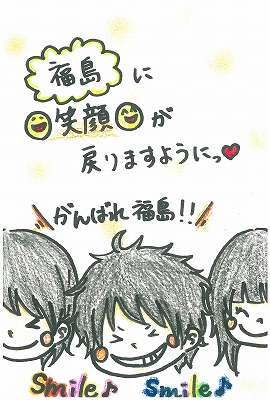 福島に
笑顔が
戻りますようにっ♥
がんばれ福島!!
Smile♪ Smile♪